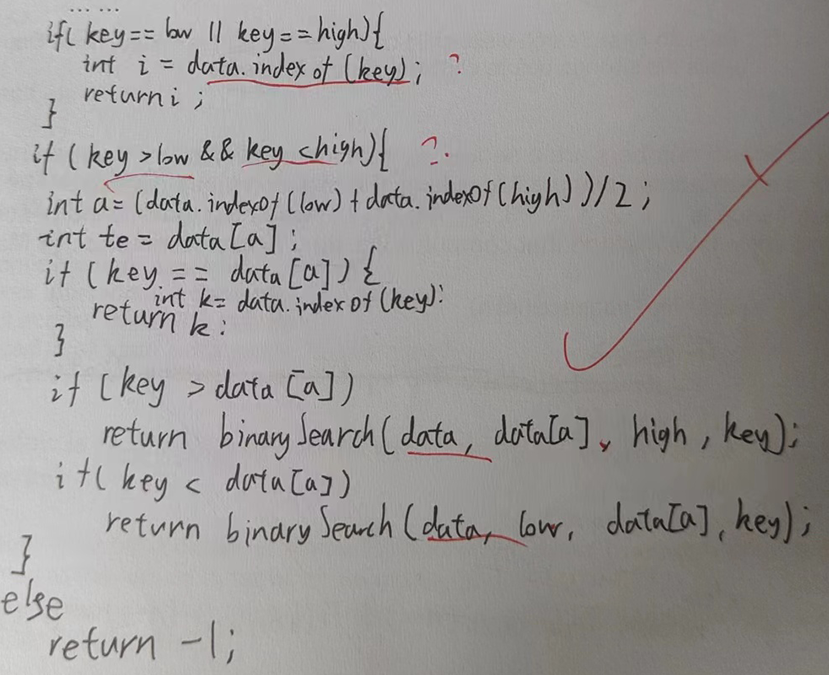 ... ...
if( key == low || key == high){
int i = data.indexof (key); ?
return i ;
}
if ( key > low && key < high){ ?.
int a= (data.indexOf (low) + data.indexOf (high) )/2 ;
int te = data [a] ;
if ( key == data [a] ) {
int k= data.index of (key):
return k :
}
if ( key > data [a] )
return binarySearch( data, data[a] , high , key);
if( key < data [a] )
return binarySearch ( data, low, data[a] , key) ;
}
else
return -1;